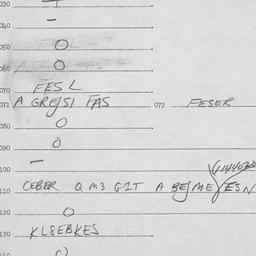 030
040 -
050 O
060 O
070 FES L
071 A GREJSI FAS 072 FESER
080 O
090 O
100 -
110 CEBER Q M3 G1T A BEJME ESN
120 O
130 KL8EBKES
140 O